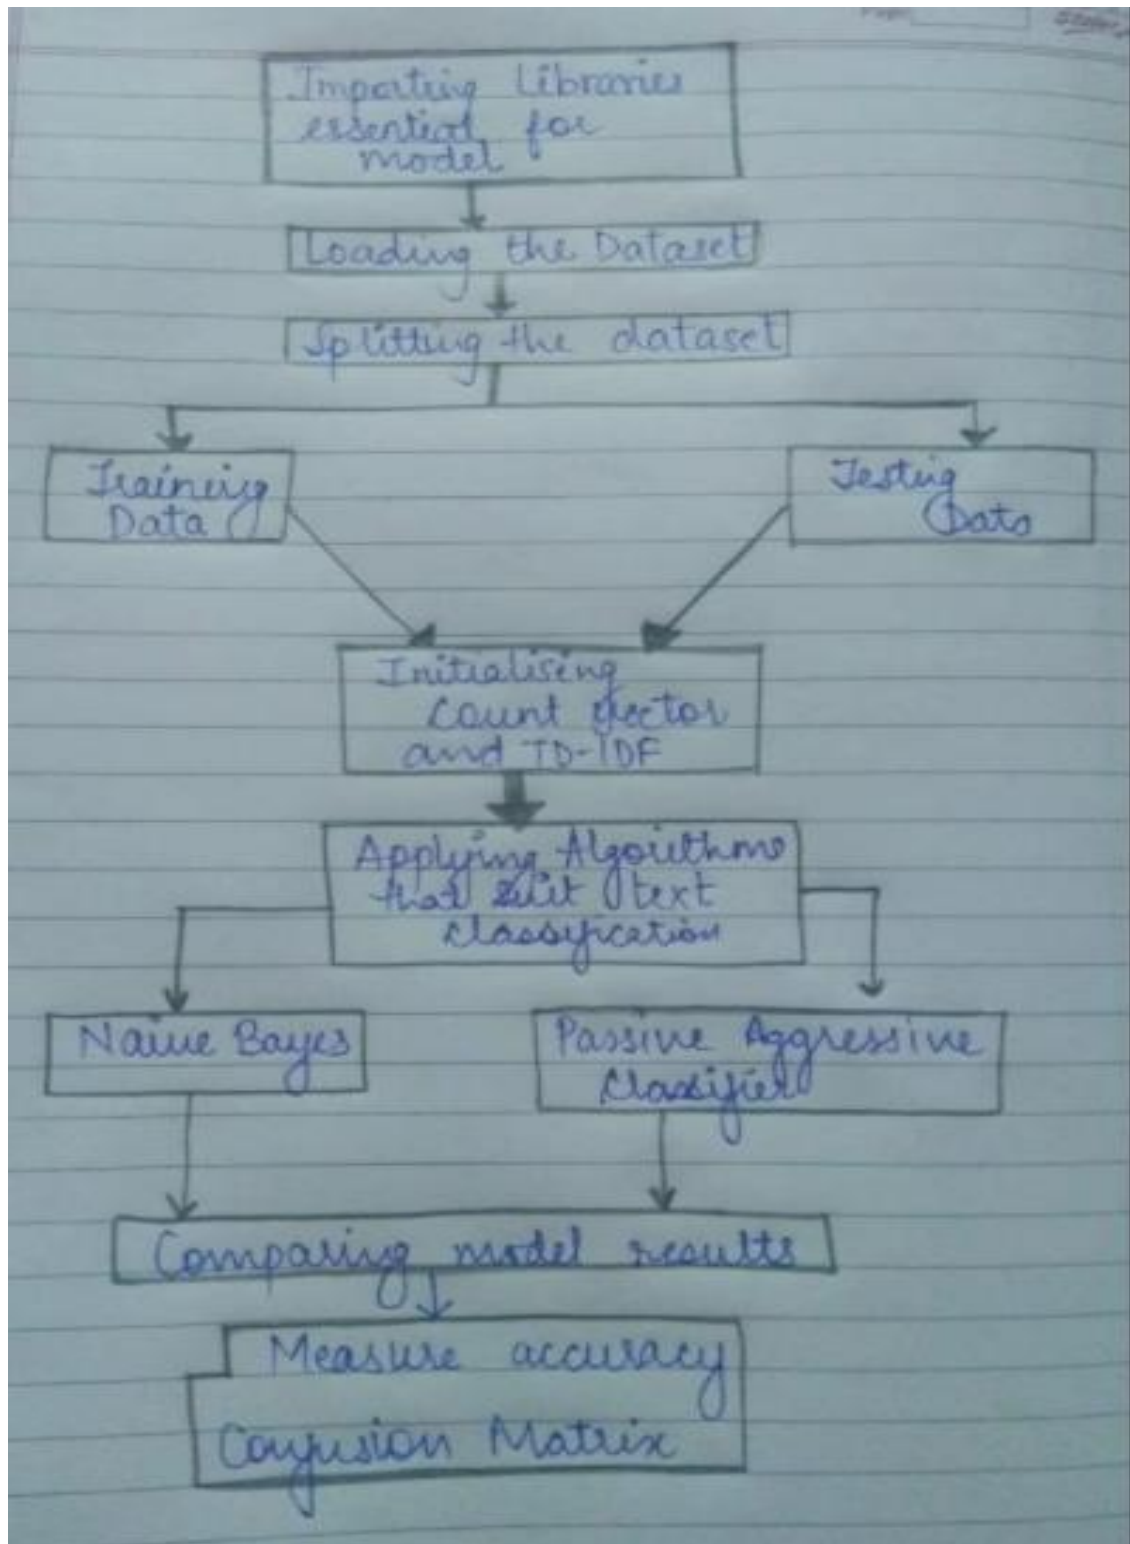 Importing Libraries
essential for
model
Loading the Dataset
Splitting the dataset
Training
Data
Testing
Data
Initialising
Count Vector
and TD-IDF
Applying Algorithms
that suit text
classification
Naive Bayes
Passive Aggressive
Classifier
Comparing model results
Measure accuracy
Confusion Matrix